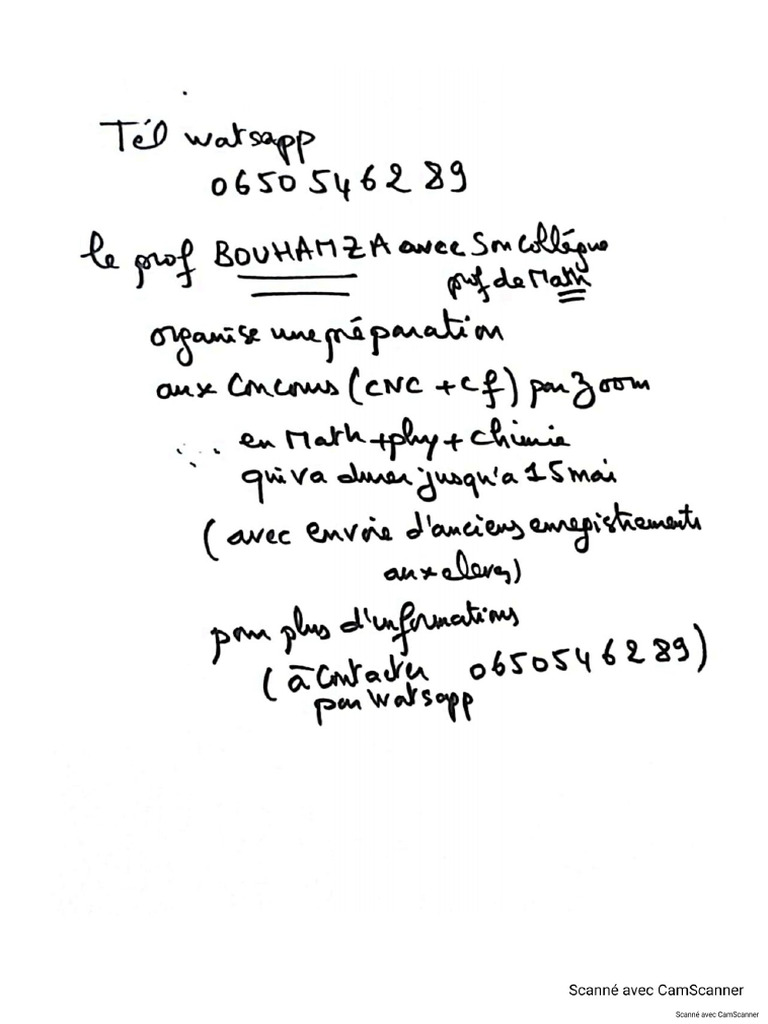 Tél watsapp
0650546289
le prof BOUHAMZA avec son collégue
prof de Math
organise une préparation
aux concours (CNC + cf) par zoom
en Math + phy + chimie
qui va durer jusqu'a 15 mai
(avec envoie d'anciens enregistrements
aux eleves)
pour plus d'informations
(à contacter 0650546289)
par watsapp
Scanné avec CamScanner
Scanné avec CamScanner